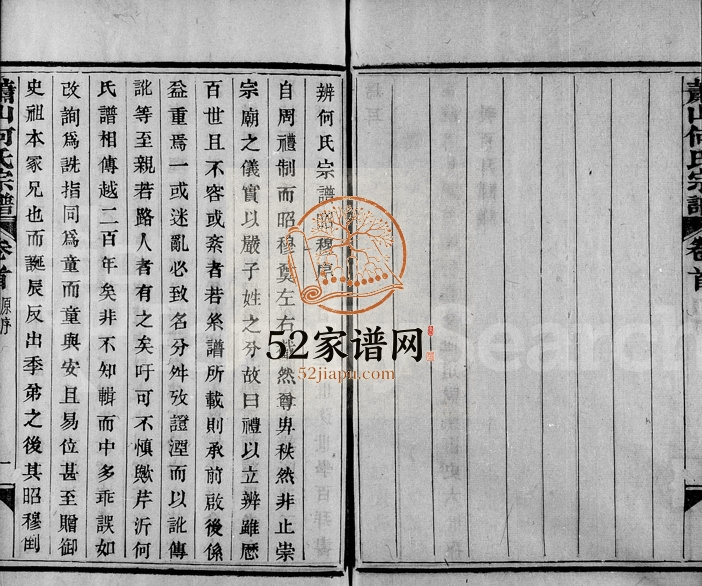 蕭山何氏宗譜 卷首
辨何氏宗譜昭穆序
自周禮制而昭穆奠左右截然尊卑秩然非止崇
宗廟之儀實以嚴子姓之分故曰禮以立辨雖歷
百世且不容或紊者若系譜所載則承前啟後係
益重焉一或迷亂必致名分舛攷證湮而以訛傳
訛等至親若路人者有之矣吁可不慎歟芹沂何
氏譜相傳越二百年矣非不知輯而中多乖誤如
改詢為詵指同為童而童與安且易位甚至贈御
史祖本冢兄也而誕辰反出季弟之後其昭穆倒
蕭山何氏宗譜 卷首 原序 一
52家谱网
52jiapu.com
Search